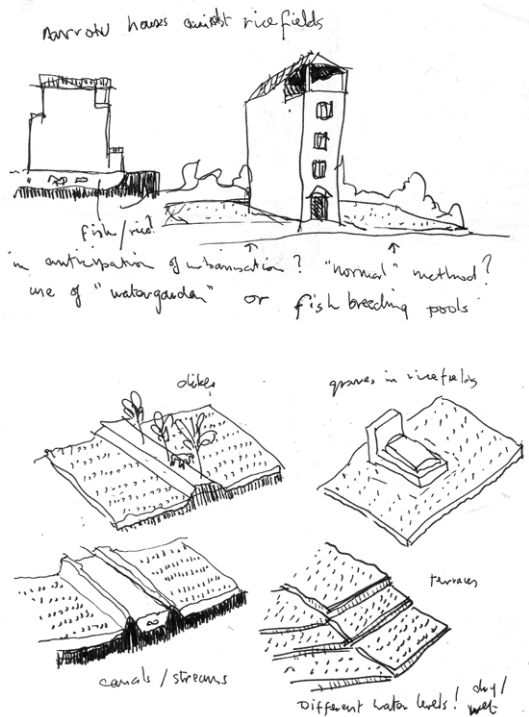 narrow houses amidst ricefields
fish/rice!
in anticipation of urbanisation? "normal" method?
use of "watergarden" or fish breeding pools
dikes
graves in ricefields
canals / streams
terraces
Different water levels! dry/
wet